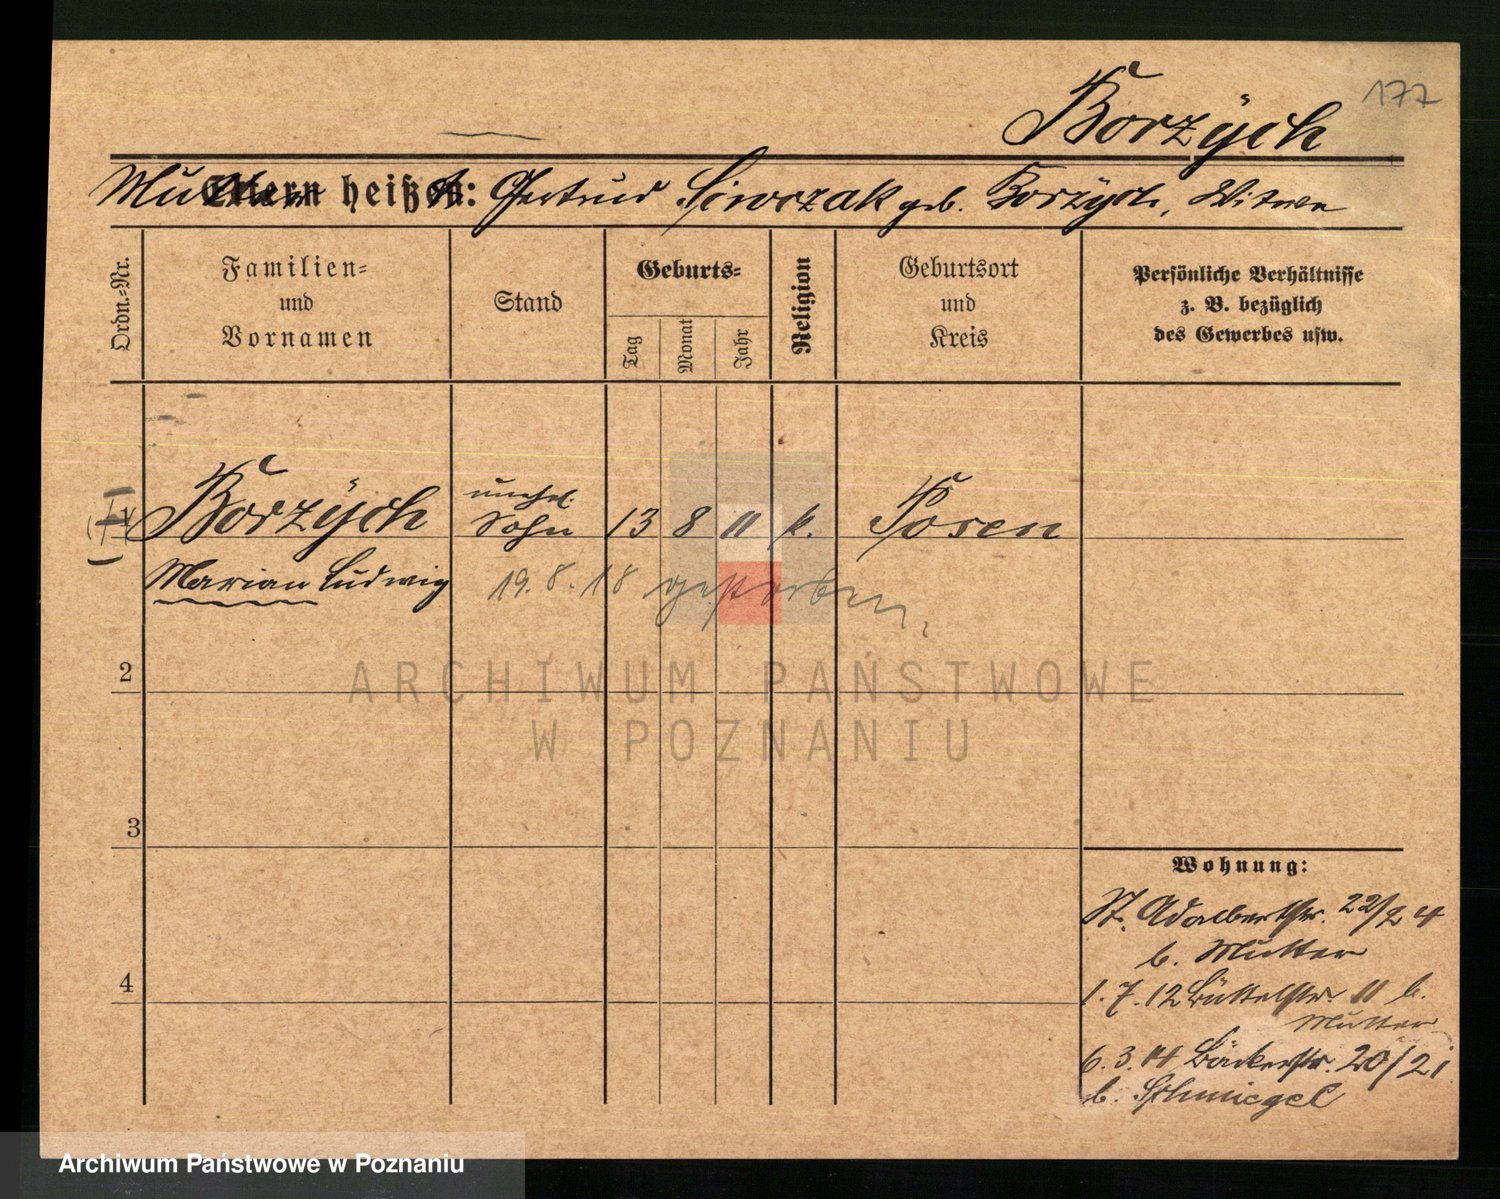 177
Borzÿch
Mutter heißt: Gertrud Siwczak geb. Borzÿch, Witwe
Ordn.-Nr.
Familien-
und
Vornamen
Stand
Geburts-
Tag
Monat
Jahr
Religion
Geburtsort
und
Kreis
Persönliche Verhältnisse
z. B. bezüglich
des Gewerbes usw.
Borzÿch unehel. Sohn 13 8 11 k. Posen
Marian Ludwig 19.8.18 gestorben.
ARCHIWUM PAŃSTWOWE
W POZNANIU
2
3
4
Wohnung:
St. Adalbertstr. 22/24
b. Mutter
1.7.12 Büttelstr. 11 b.
Mutter
6.3.14 Bäckerstr. 20/21
b. Schmiegel
Archiwum Państwowe w Poznaniu